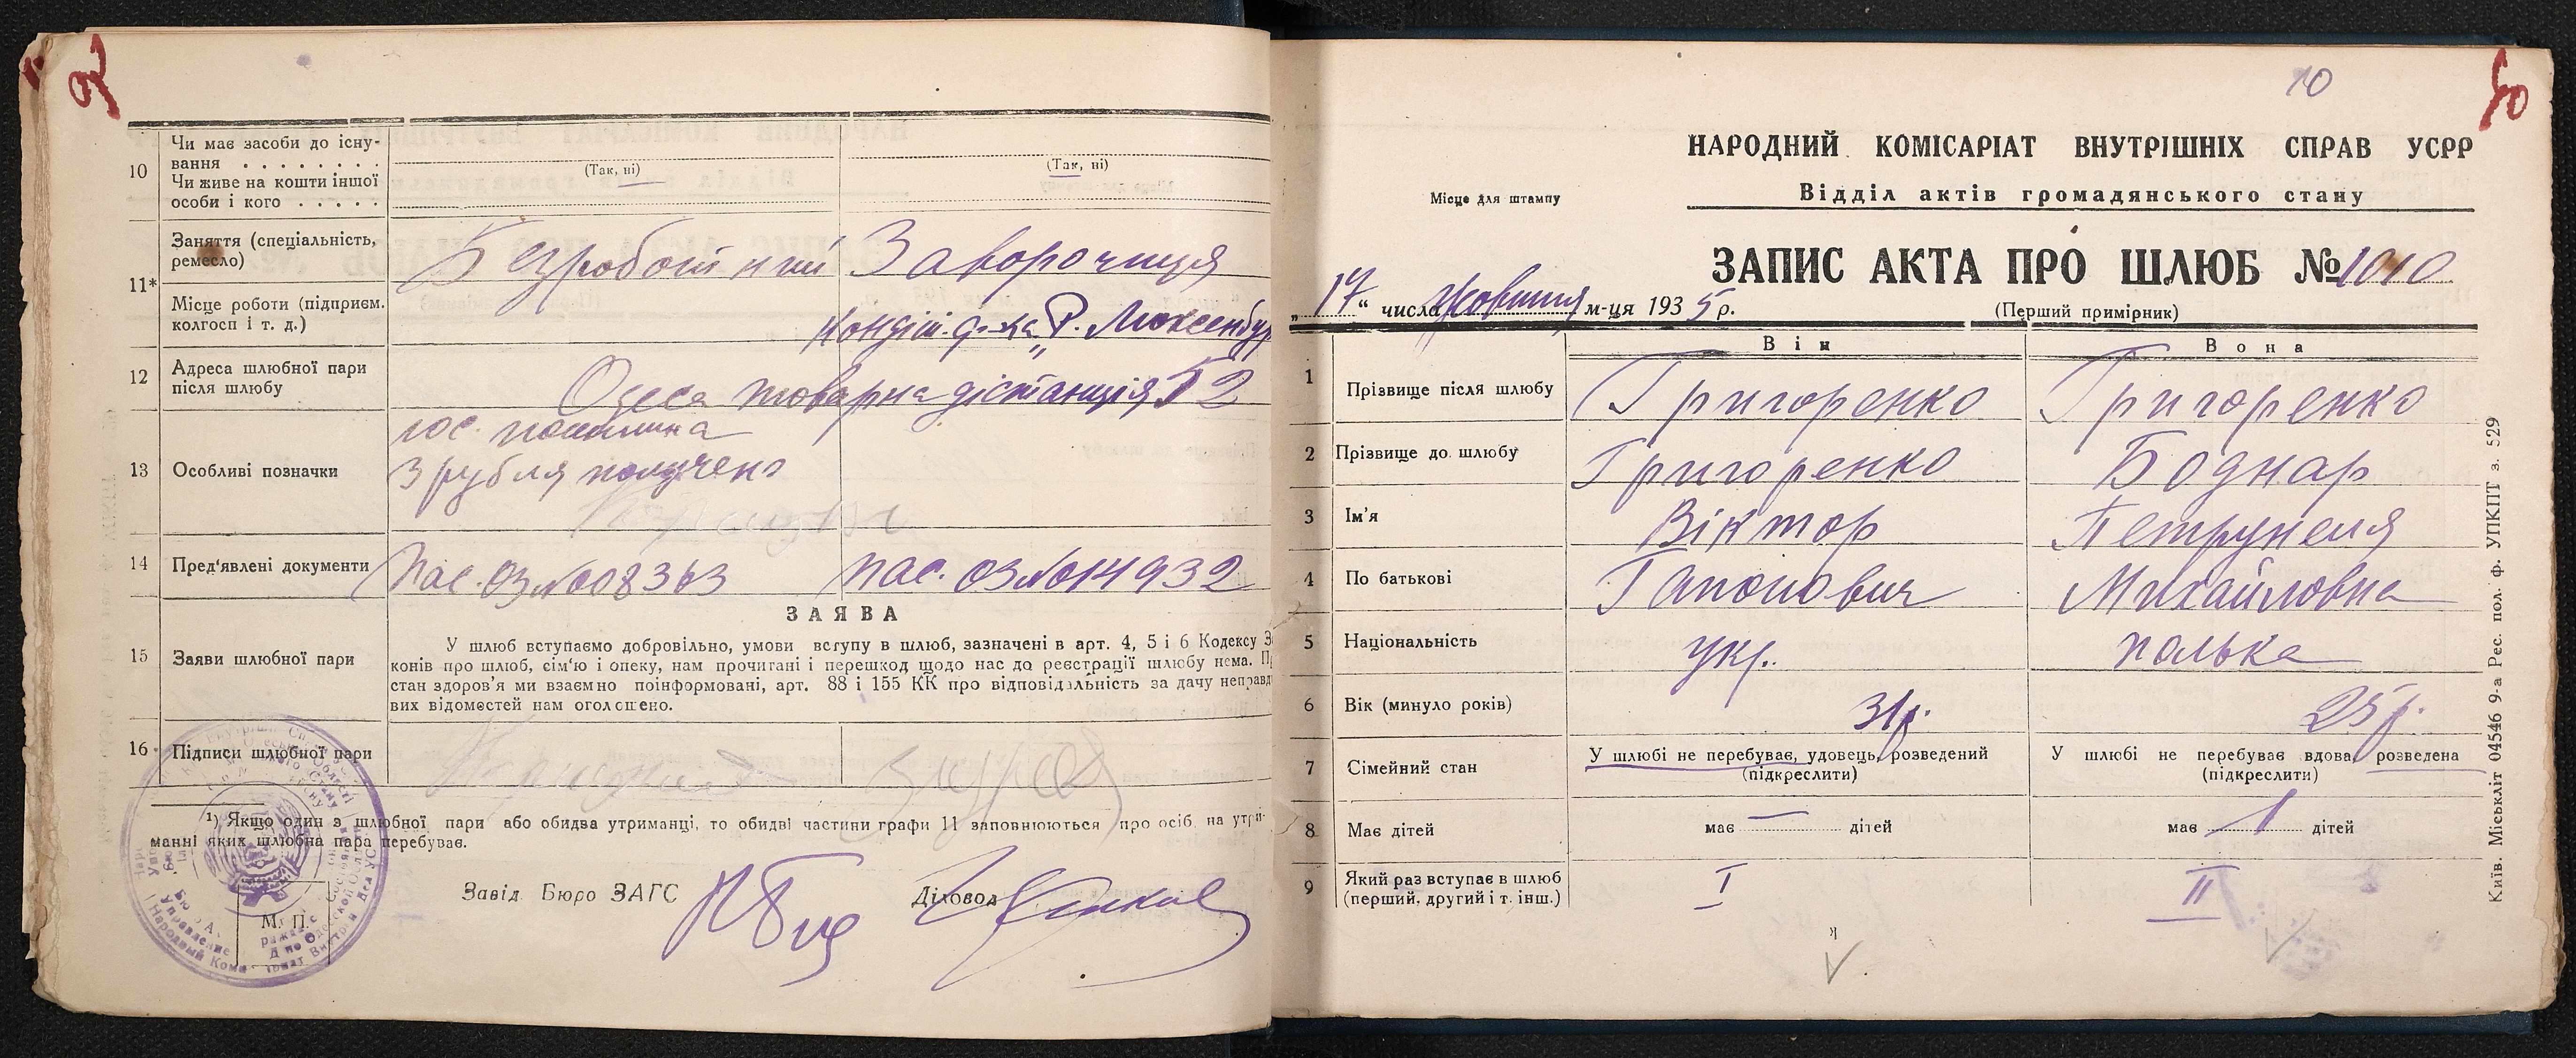 10
Чи має засоби до існу-
вання . . . . . . . .
Чи живе на кошти іншої
особи і кого . . . . .
(Так, ні)
(Так, ні)
11*
Заняття (спеціальність,
ремесло)
Безроботний
Заворочиця
Місце роботи (підприєм.
колгосп і т. д.)
Кондій. ф-ка „Р. Люксенбур
12
Адреса шлюбної пари
після шлюбу
Одеса товарна дістанція Т2
13
Особливі позначки
гос. пошлина
3 рубля получено
14
Пред'явлені документи
Пас. ОЗ № 008363
пас. ОЗ № 014932
ЗАЯВА
15
Заяви шлюбної пари
У шлюб вступаємо добровільно, умови вступу в шлюб, зазначені в арт. 4, 5 і 6 Кодексу З
конів про шлюб, сім'ю і опеку, нам прочитані і перешкод щодо нас до реєстрації шлюбу нема. П
стан здоров'я ми взаємно поінформовані, арт. 88 і 155 КК про відповідальність за дачу неправд
вих відомостей нам оголошено.
16
Підписи шлюбної пари
¹) Якщо один з шлюбної пари або обидва утриманці, то обидві частини графи 11 заповнюються про осіб, на утри-
манні яких шлюбна пара перебуває.
Завід Бюро ЗАГС
Діловод
М. П.
10
50
НАРОДНИЙ КОМІСАРІАТ ВНУТРІШНІХ СПРАВ УСРР
Місце для штампу
Відділ актів громадянського стану
ЗАПИС АКТА ПРО ШЛЮБ № 1010
„17“ числа жовтня м-ця 1935 р.
(Перший примірник)
Він
Вона
1
Прізвище після шлюбу
Григоренко
Григоренко
2
Прізвище до шлюбу
Григоренко
Боднар
3
Ім'я
Віктор
Петрунеля
4
По батькові
Гапонович
Михайловна
5
Національність
укр.
полька
6
Вік (минуло років)
31р.
25р.
7
Сімейний стан
У шлюбі не перебуває, удовець, розведений
(підкреслити)
У шлюбі не перебуває вдова, розведена
(підкреслити)
8
Має дітей
має — дітей
має 1 дітей
9
Який раз вступає в шлюб
(перший, другий і т. інш.)
I
II
Київ. Міськліт 04546 9-а Рес. пол. ф. УПКПТ з. 529